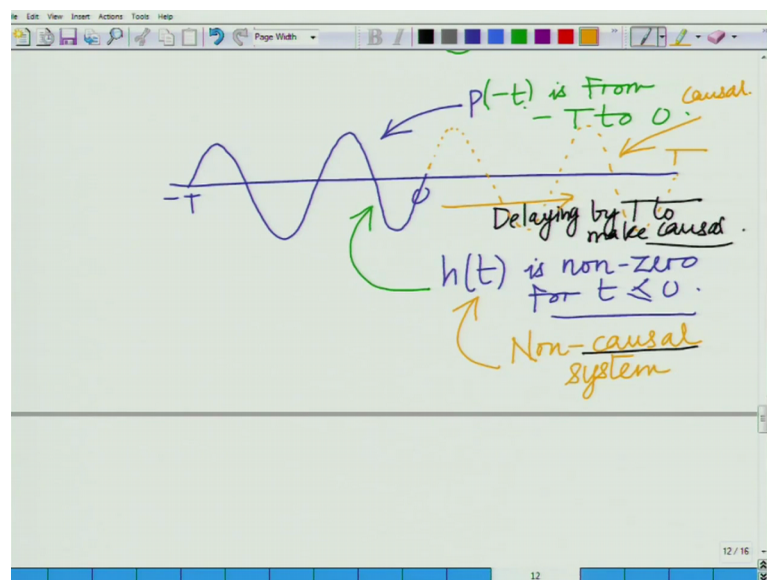 Edit View Insert Actions Tools Help
Page Width
p(-t) is from
- T to 0.
causal.
T
-T
0
Delaying by T to
make causal.
h(t) is non-zero
for t ≤ 0.
Non-causal
system
12 / 16
12